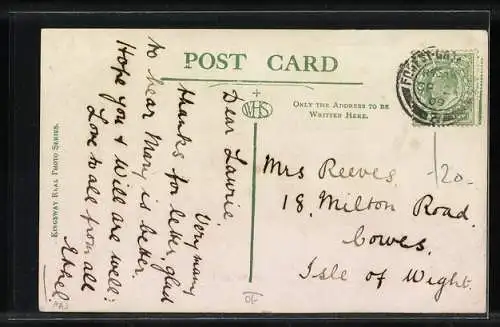 POST CARD
KINGSWAY REAL PHOTO SERIES.
WHS
ONLY THE ADDRESS TO BE
WRITTEN HERE.
FOREST GATE
09
Dear Lawrie,
Very many
thanks for letter, glad
to hear Mary is better.
Hope you & Will are well:
Love to all from all
Ethel
Mrs Reeves.
18, Milton Road,
Cowes,
Isle of Wight.
-20-